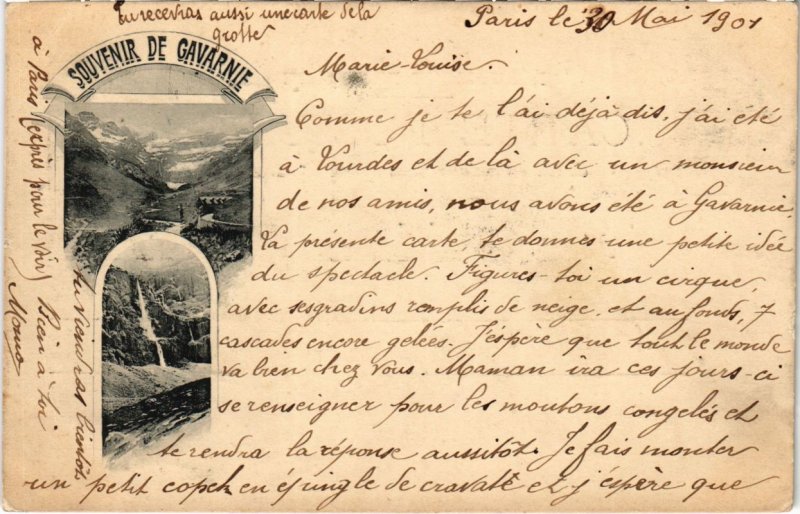 Tu recevras aussi une carte de la
grotte
SOUVENIR DE GAVARNIE
Paris le 30 Mai 1901
Marie-Louise.
Comme je te l'ai déjà dis, j'ai été
à Lourdes et de là avec un monsieur
de nos amis, nous avons été à Gavarnie.
La présente carte, te donnes une petite idée
du spectacle. Figures-toi un cirque,
avec ses gradins remplis de neige, et au fonds, 7
cascades encore gelées. J'espère que tout le monde
va bien chez vous. Maman ira ces jours-ci
se renseigner pour les moutons congelés et
te rendra la réponse aussitôt. Je fais monter
un petit copek en épingle de cravate et j'espère que
tu viendras bientôt
à Paris (exprès pour le voir)
Bien à toi